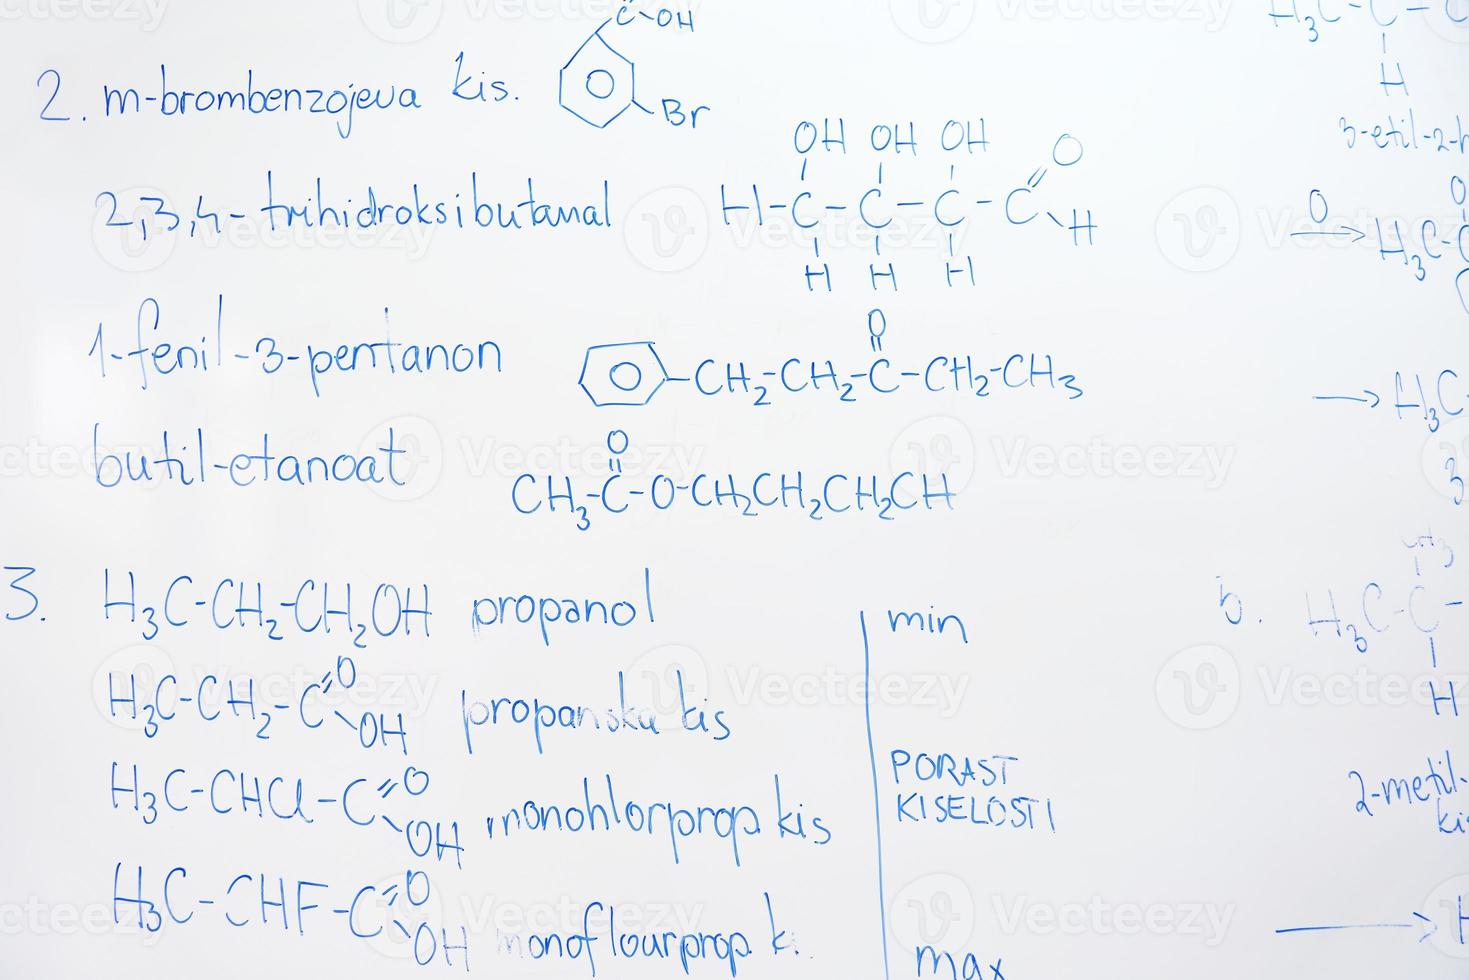 C-OH
2. m-brombenzojeva kis.
Br
2,3,4-trihidroksibutanal
OH OH OH O
H-C-C-C-C
H
H H H
1-fenil-3-pentanon
O
CH2-CH2-C-CH2-CH3
butil-etanoat
O
CH3-C-O-CH2CH2CH2CH
3. H3C-CH2-CH2OH propanol
H3C-CH2-C=O
OH
propanska kis
H3C-CHCl-C=O
OH
monohlorprop. kis
H3C-CHF-C=O
OH
monoflourprop. k.
min
PORAST
KISELOSTI
max
H3C-C-
H
3-etil-2-
O
→ H3C-
→ H3C
3
b. H3C-C-
H
2-metil-
→ H
Vecteezy